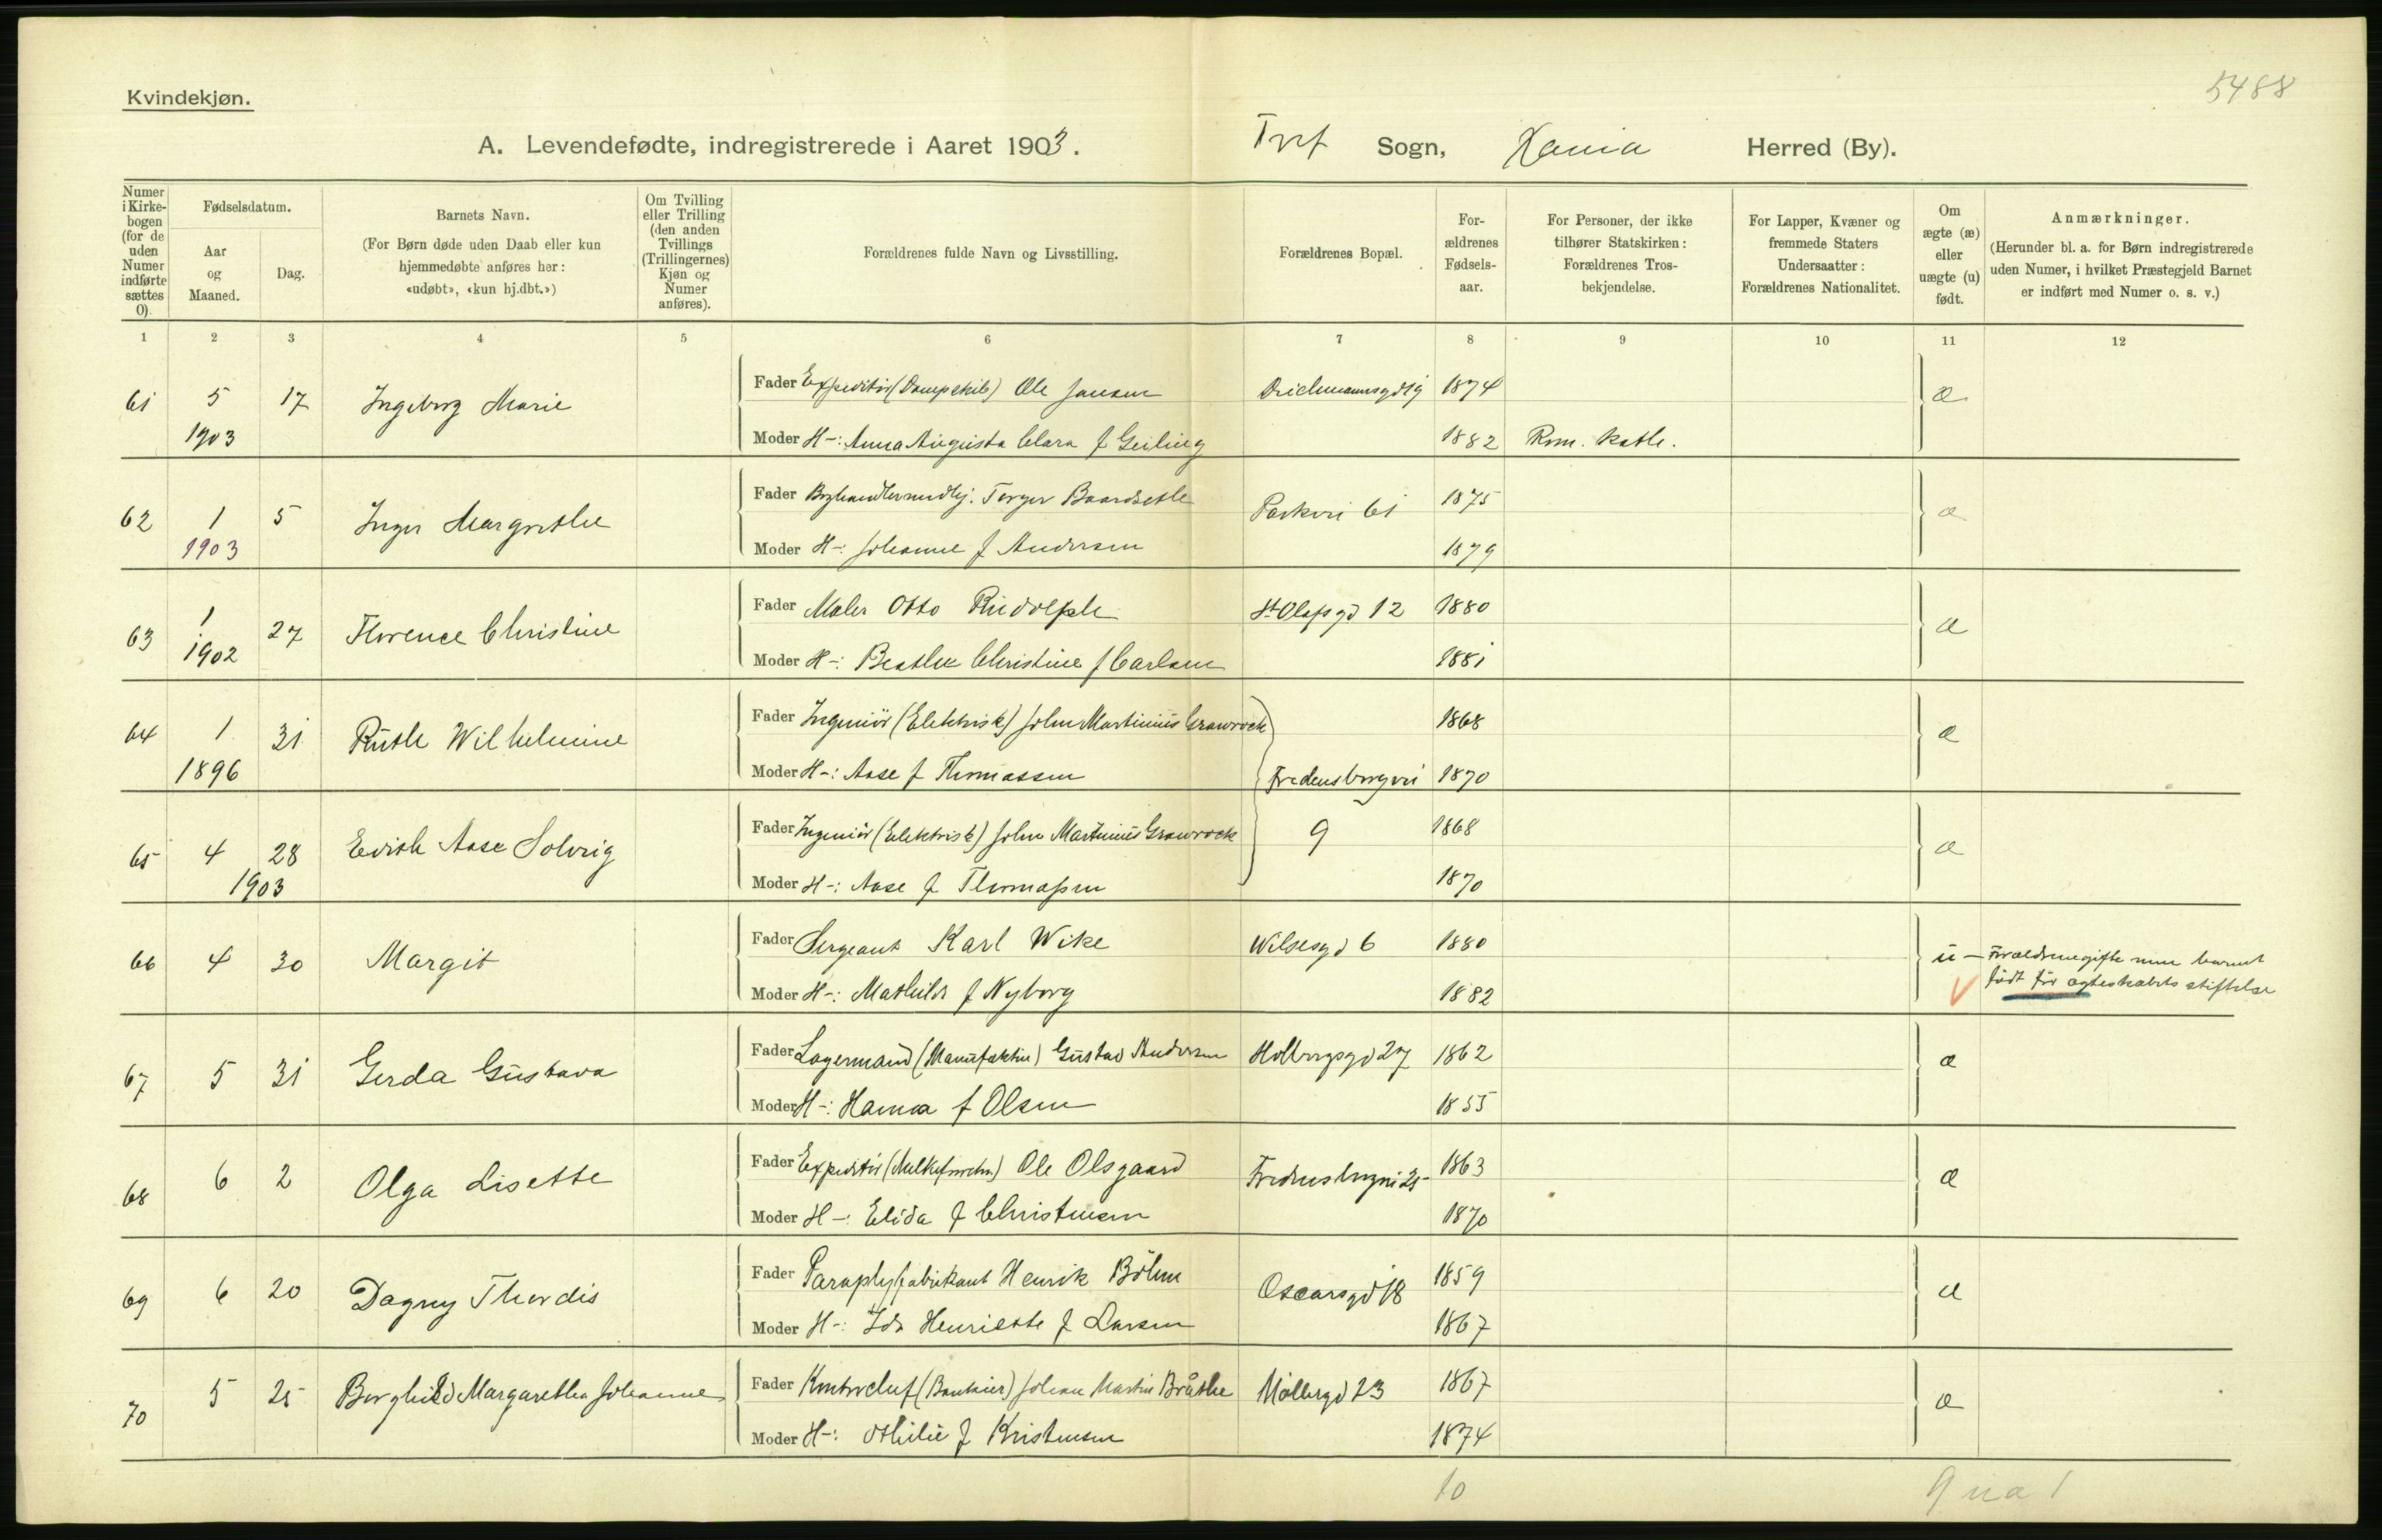 5488
Kvindekjøn.
A. Levendefødte, indregistrerede i Aaret 1903. Tref Sogn, Xania Herred (By).
Numer i Kirke-bogen (for de uden Numer indførte sættes 0).
Fødselsdatum.
Aar og Maaned.
Dag.
Barnets Navn.
(For Børn døde uden Daab eller kun hjemmedøbte anføres her: «udøbt», «kun hj.dbt.»)
Om Tvilling eller Trilling (den anden Tvillings (Trillingernes) Kjøn og Numer anføres).
Forældrenes fulde Navn og Livsstilling.
Forældrenes Bopæl.
For-ældrenes Fødsels-aar.
For Personer, der ikke tilhører Statskirken: Forældrenes Tros-bekjendelse.
For Lapper, Kvæner og fremmede Staters Undersaatter: Forældrenes Nationalitet.
Om ægte (æ) eller uægte (u) født.
Anmærkninger.
(Herunder bl. a. for Børn indregistrerede uden Numer, i hvilket Præstegjeld Barnet er indført med Numer o. s. v.)
1 2 3 4 5 6 7 8 9 10 11 12
61 5 17 Ingeborg Marie Fader Expeditør (Dampskib) Ole Jansen Deichmannsgd 19 1874 æ
1903 Moder H-: Anna Augusta Clara f Geiling 1882 Rom. kath.
62 1 5 Inger Margrethe Fader Boghandlermedhj. Torger Baardseth Parkvei 61 1875 æ
1903 Moder H-: Johanne f Andersen 1879
63 1 27 Florence Christine Fader Maler Otto Rudolph St Olafsgd 12 1880 æ
1902 Moder H-: Beathe Christine f Carlsen 1881
64 1 31 Ruth Wilhelmine Fader Ingeniør (Elektrisk) John Martinius Grawrock 1868 æ
1896 Moder H-: Aase f Thomassen Fredensborgvei 1870
65 4 28 Edith Aase Solveig Fader Ingeniør (Elektrisk) John Martinius Grawrock 9 1868 æ
1903 Moder H-: Aase f Thomassen 1870
66 4 30 Margit Fader Sergeant Karl Wike Wilsesgd 6 1880 u — Forældrene gifte men barnet
født før ægteskabets stiftelse
Moder H-: Mathilde f Nyborg 1882
67 5 31 Gerda Gustava Fader Lagermand (Manufaktur) Gustav Andersen Holbergsgd 27 1862 æ
Moder H-: Hanna f Olsen 1855
68 6 2 Olga Lisette Fader Expeditør (Melkeforretn) Ole Olsgaard Fredensborgvei 25 1863 æ
Moder H-: Elida f Christensen 1870
69 6 20 Dagny Thordis Fader Paraplyfabrikant Henrik Böhm Oscarsgd 18 1859 æ
Moder H-: Ida Henriette f Larsen 1867
70 5 25 Borghild Margaretha Johanne Fader Kontorchef (Bankier) Johan Martin Bråthe Møllergd 23 1867 æ
Moder H-: Othilie f Kristensen 1874
10 9 1